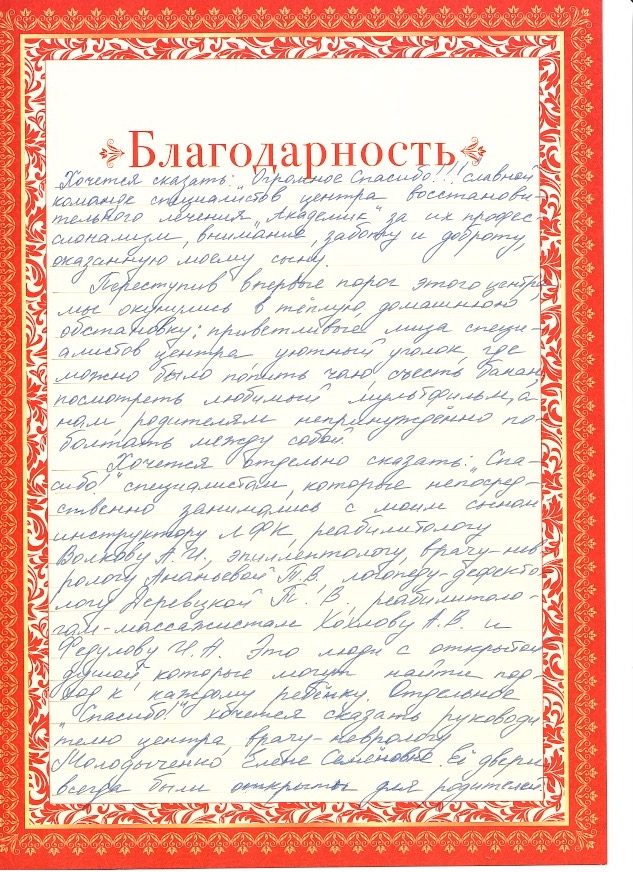 Благодарность
Хочется сказать: "Огромное Спасибо!!! славной
команде специалистов центра восстанови-
тельного лечения „Академик" за их профес
сионализм, внимание, заботу и доброту,
оказанную моему сыну.
Переступив впервые порог этого центра
мы окунулись в тёплую, домашнюю
обстановку: приветливые лица специ-
алистов центра, уютный уголок, где
можно было попить чаю, съесть банан,
посмотреть любимый мультфильм, а
нам, родителям непринуждённо по-
болтать между собой.
Хочется отдельно сказать: „Спа-
сибо!" специалистам, которые непосред-
ственно занимались с моим сыном
инструктору ЛФК, реабилитологу
Волкову А.И., эпилептологу, врачу-нев
рологу Ананьевой Т.В., логопеду-дефекто
логу Деревцкой Т.В., реабилитоло-
гам-массажистам Козлову А.В. и
Федулову И.А. Это люди с открытой
душой, которые могут найти под-
ход к каждому ребёнку. Отдельное
„Спасибо!" хочется сказать руководи
телю центра, врачу-неврологу
Молодыченко Елене Семёновне. Её двери
всегда были открыты для родителей